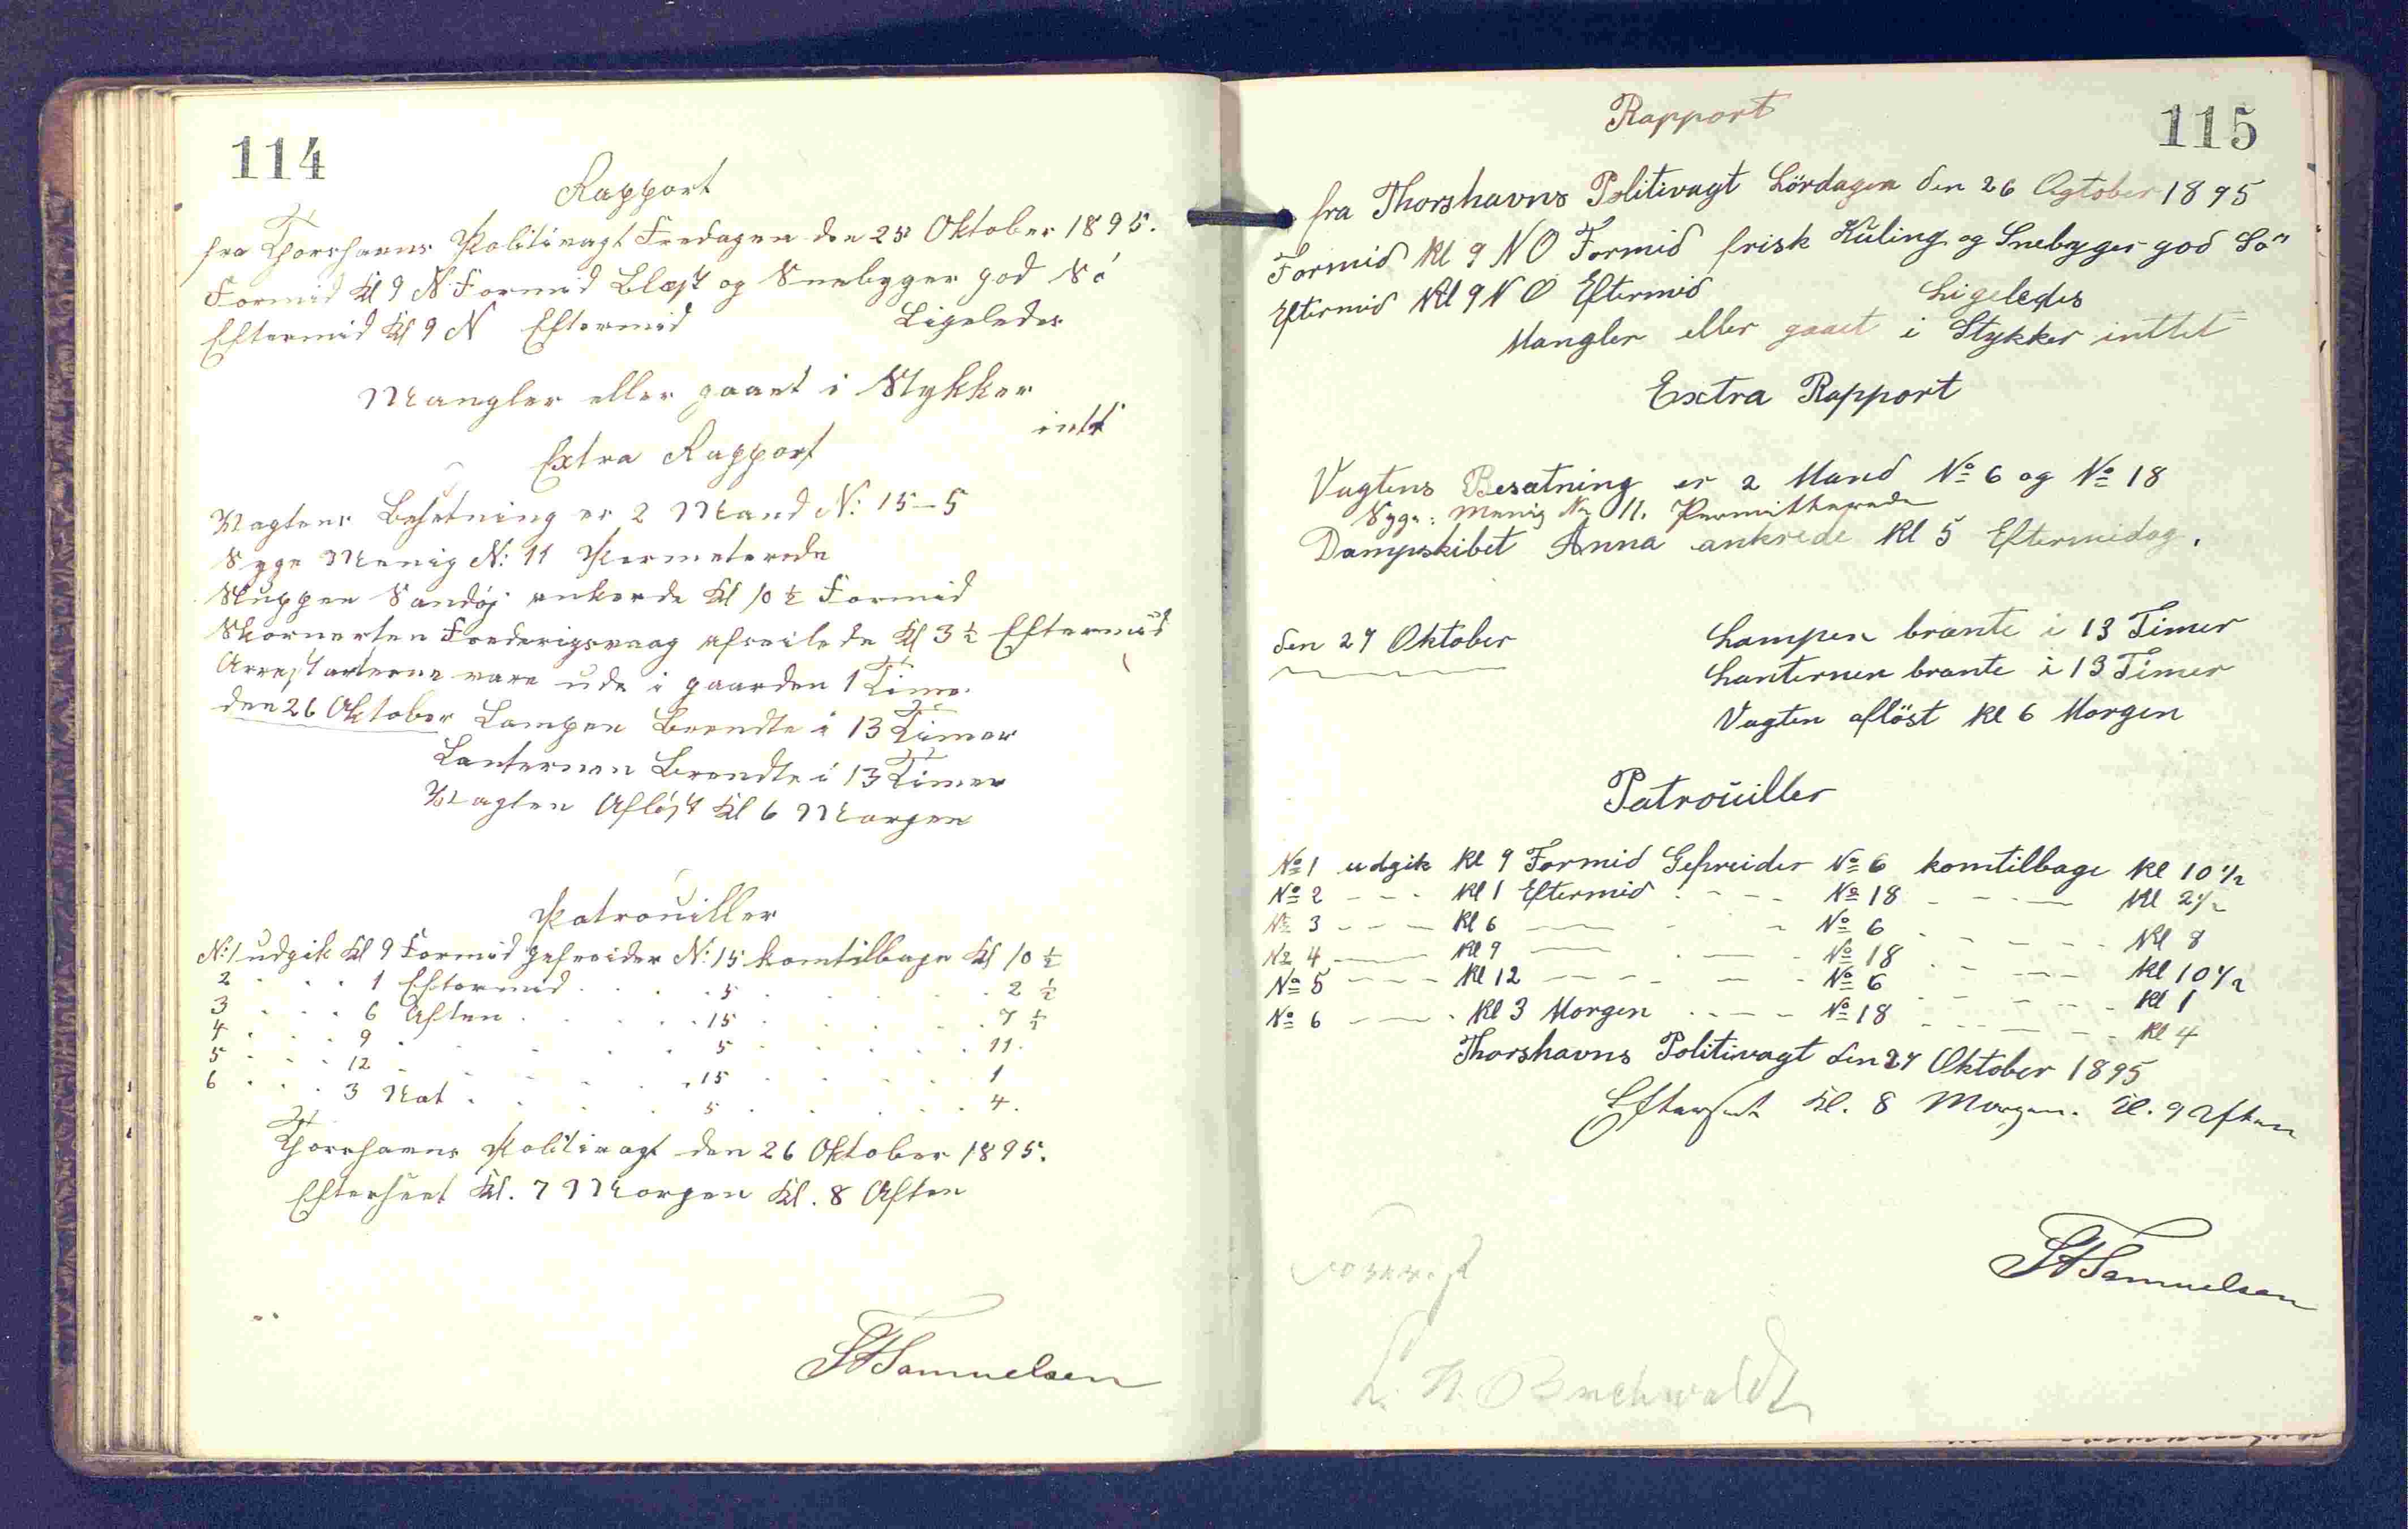 114
Rapport
fra Thorshavns Politivagt Fredagen den 25 Oktober 1895.
Formid Kl 9 N. Formid Blæst og Snebyger god Sö
Eftermid Kl 9 N Eftermid Ligeledes
Mangler eller gaaet i Stykker
intt
Extra Rapport
Vagtens Besetning er 2 Mand N: 15-5
Syge Menig N: 11 Permeterede
Sluppen Sandöj ankerde Kl 10 ½ Formid
Skonnerten Frederigsvaag afseilede Kl 3 ½ Eftermid
Arrestanterne vare ude i gaarden 1 Time.
den 26 Oktober Lampen Brendte i 13 Timer
Lanternen Brendte i 13 Timer
Vagten Aflöst Kl 6 Morgen
Patrouiller
N: 1 udgik Kl 9 Formid gefreider N: 15 komtilbage Kl 10 ½
2 . . . 1 Eftermid . . . 5 . . . 2 ½
3 . . . 6 Aften . . . 15 . . . 7 ½
4 . . . 9 . . . 5 . . . 11.
5 . . . 12 . . . 15 . . . 1
6 . . . 3 Nat . . . 5 . . . 4.
Thorshavns Politivagt den 26 Oktober 1895.
Efterseet Kl. 7 Morgen Kl. 8 Aften
SASamuelsen
115
Rapport
fra Thorshavns Politivagt Lördagen den 26 Ogtober 1895
Formid Kl 9 NO Formid frisk Kuling og Snebyger god Sö
Eftermid Kl 9 NO Eftermid Ligeledes
Mangler eller gaaet i Stykker inttet
Extra Rapport
Vagtens Besatning er 2 Mand No 6 og No 18
Syge: Menig No 11. Permitterede
Dampskibet Anna ankrede Kl 5 Eftermidag.
den 27 Oktober Lampen brante i 13 Timer
Lanternen brante i 13 Timer
Vagten aflöst Kl 6 Morgen
Patrouiller
No 1 udgik Kl 9 Formid Gefreider No 6 komtilbage Kl 10 1/2
No 2 - - - Kl 1 Eftermid - - - No 18 - - - Kl 2 1/2
No 3 - - - Kl 6 - - - No 6 - - - Kl 8
No 4 - - - Kl 9 - - - No 18 - - - Kl 10 1/2
No 5 - - - Kl 12 - - - No 6 - - - Kl 1
No 6 - - - Kl 3 Morgen - - - No 18 - - - Kl 4
Thorshavns Politivagt den 27 Oktober 1895
Efterseet Kl. 8 Morgen. Kl. 9 Aften
SASamuelsen
L. N. Buchwaldt